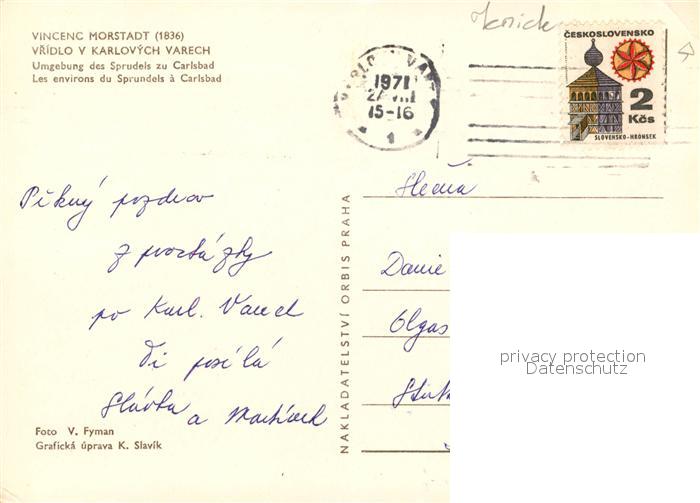 VINCENC MORSTADT (1836)
VŘÍDLO V KARLOVÝCH VARECH
Umgebung des Sprudels zu Carlsbad
Les environs du Sprundels à Carlsbad
ČESKOSLOVENSKO
2
Kčs
SLOVENSKO-HRONSEK
KARLOVY VARY
1971
27.VIII
15-16
1
Pěkný pozdrav
z procházky
po Karl. Varech
Ti posílá
Slávka a
Slečna
Danie
Olgas
NAKLADATELSTVÍ ORBIS PRAHA
privacy protection
Datenschutz
Foto V. Fyman
Grafická úprava K. Slavík